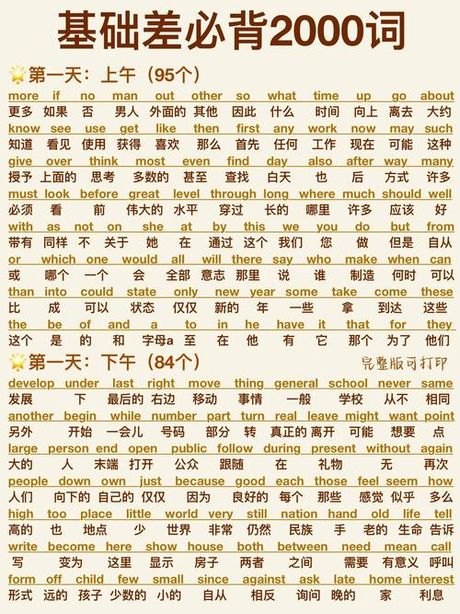 基础差必背2000词
第一天：上午（95个）
more if no man out other so what time up go about
更多 如果 否 男人 外面的 其他 因此 什么 时间 向上 离去 大约
know see use get like then first any work now may such
知道 看见 使用 获得 喜欢 那么 首先 任何 工作 现在 可能 这种
give over think most even find day also after way many
授予 上面的 思考 多数的 甚至 查找 白天 也 后 方式 许多
must look before great level through long where much should well
必须 看 前 伟大的 水平 穿过 长的 哪里 许多 应该 好
with as not on she at by this we you do but from
带有 同样 不 关于 她 在 通过 这个 我们 您 做 但是 自从
or which one would all will there say who make when can
或 哪个 一个 会 全部 意志 那里 说 谁 制造 何时 可以
than into could state only new year some take come these
比 成 可以 状态 仅仅 新的 年 一些 拿 到达 这些
the be of and a to in he have it that for they
这个 是 的 和 字母a 至 在 他 有 它 那个 为了 他们
第一天：下午（84个）
完整版可打印
develop under last right move thing general school never same
发展 下 最后的 右边 移动 事情 一般 学校 从不 相同
another begin while number part turn real leave might want point
另外 开始 一会儿 号码 部分 转 真正的 离开 可能 想要 点
large person end open public follow during present without again
大的 人 末端 打开 公众 跟随 在 礼物 无 再次
people down own just because good each those feel seem how
人们 向下的 自己的 仅仅 因为 良好的 每个 那些 感觉 似乎 多么
high too place little world very still nation hand old life tell
高的 也 地点 少 世界 非常 仍然 民族 手 老的 生命 告诉
write become here show house both between need mean call
写 变为 这里 显示 房子 两者 之间 需要 有意义 呼叫
form off child few small since against ask late home interest
形式 远的 孩子 少数的 小的 自从 相反 询问 晚的 家 利息